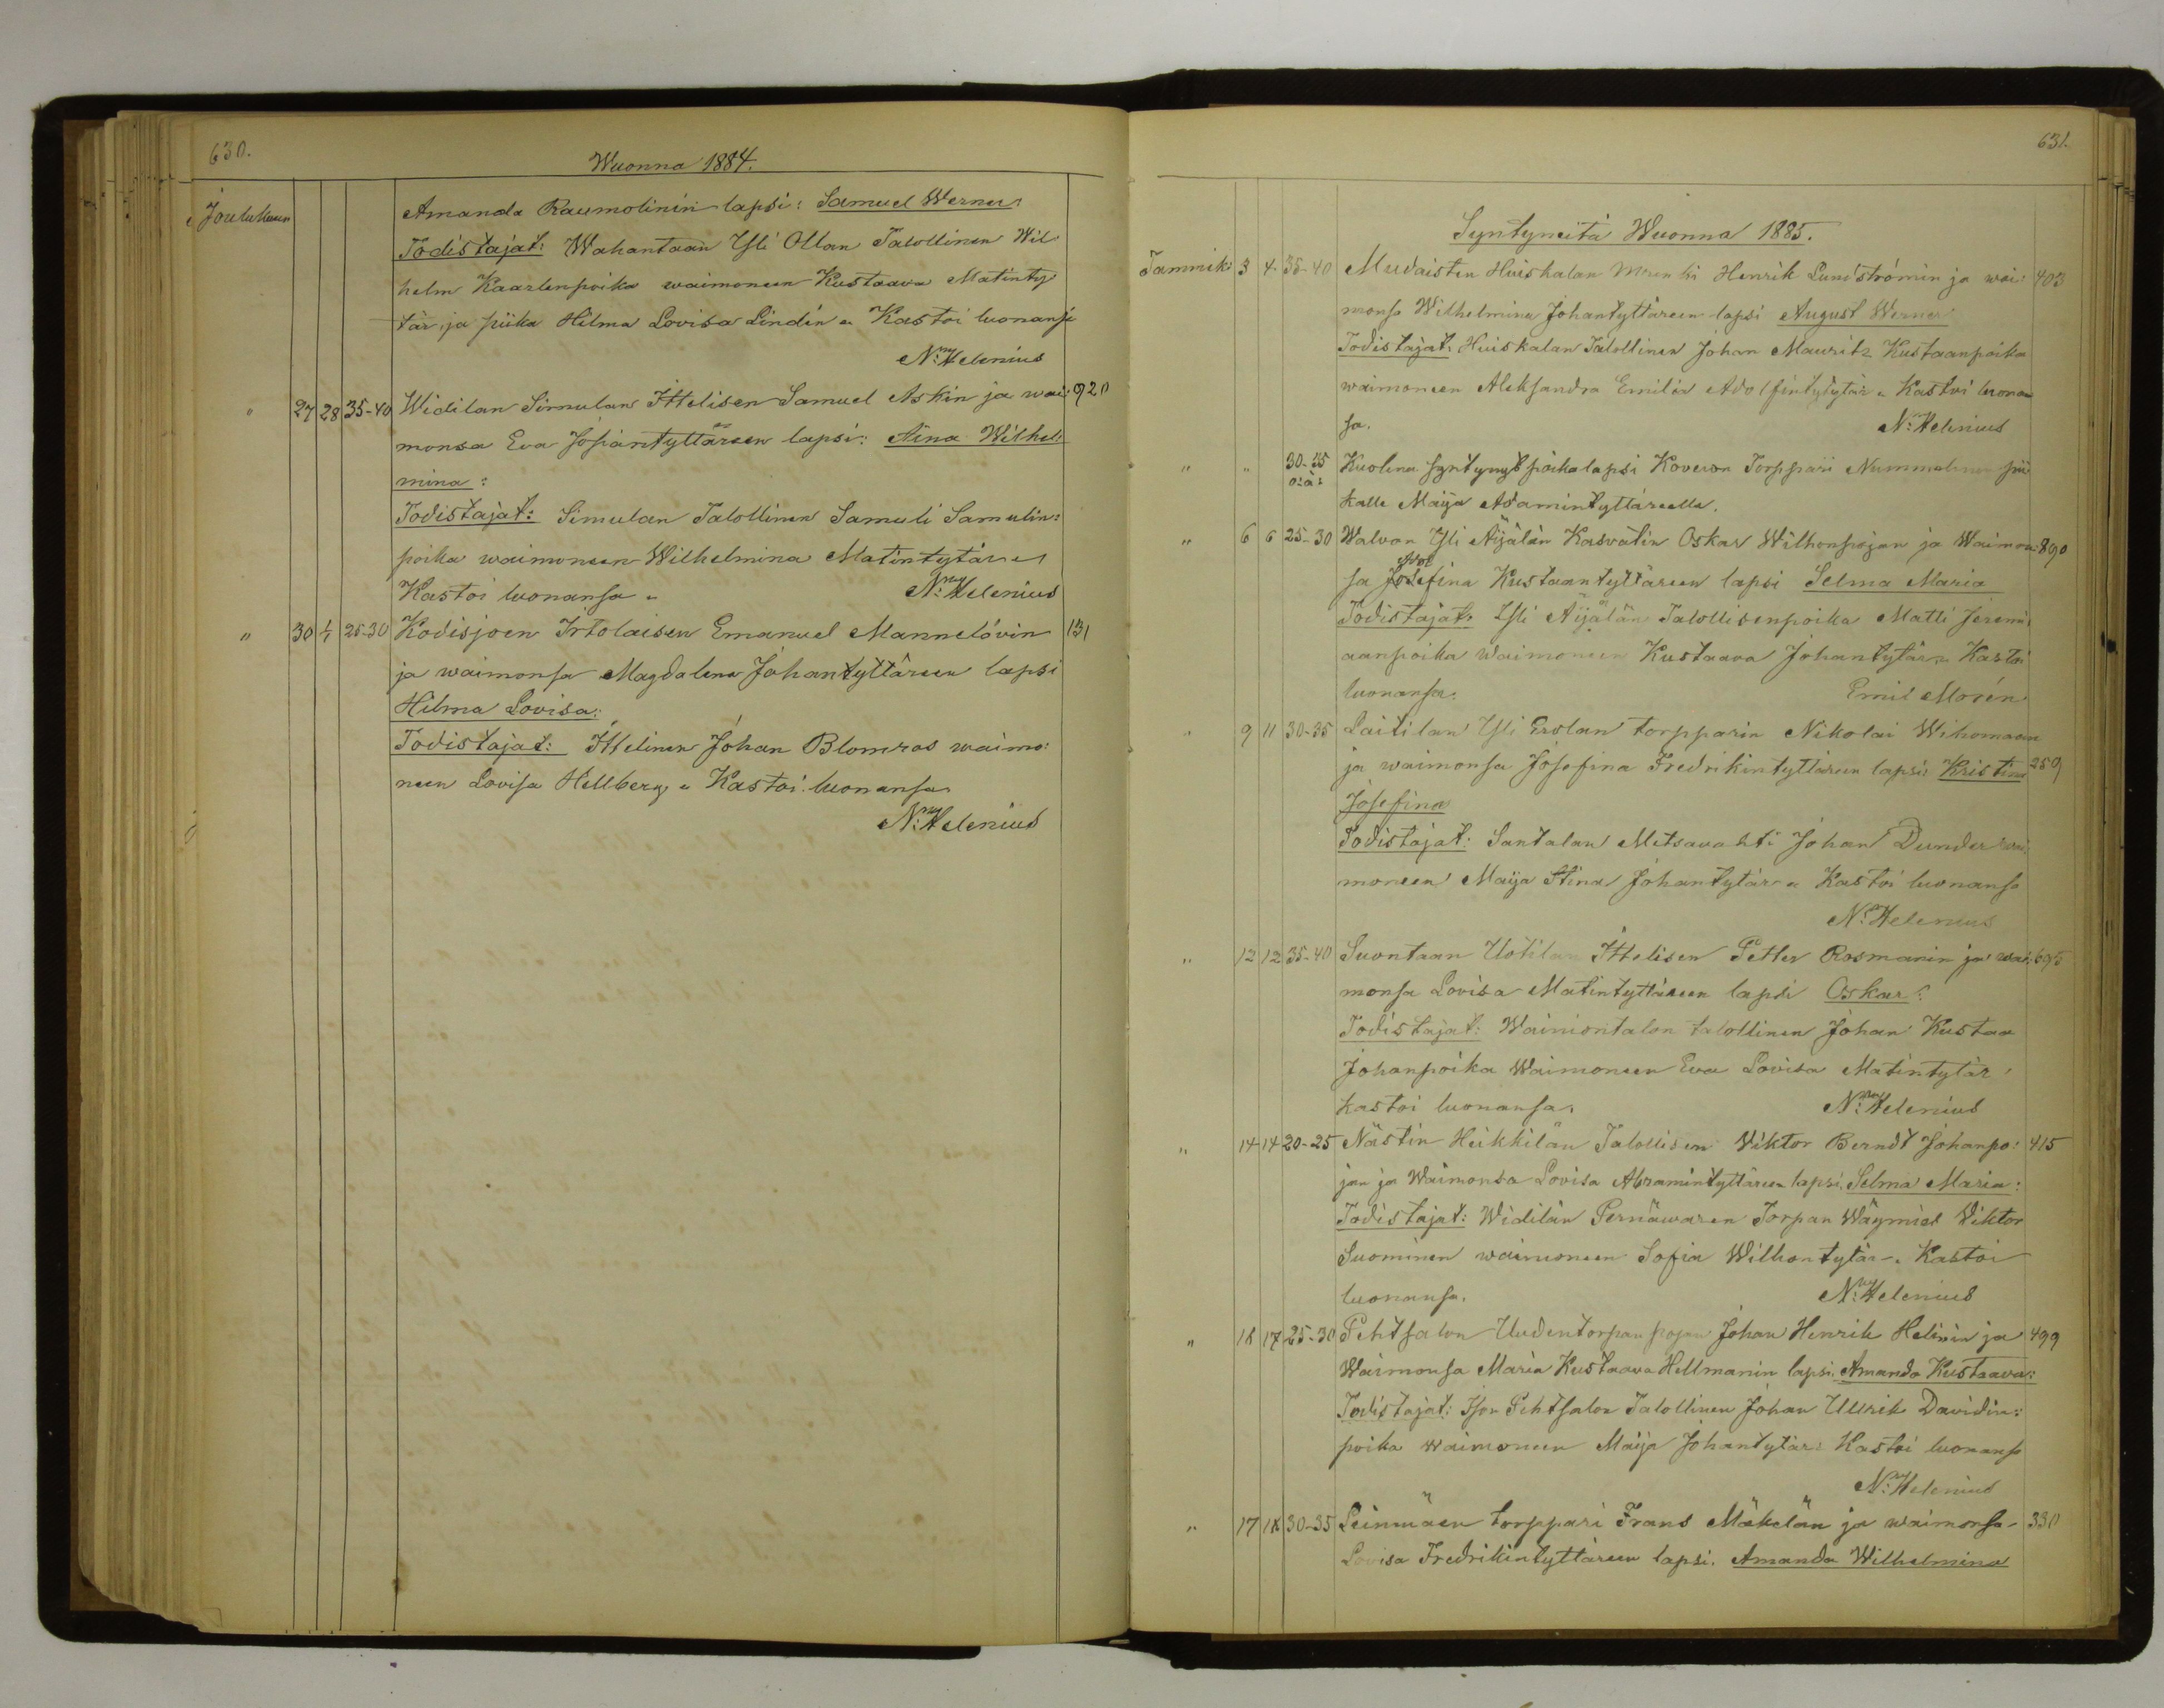 630.
Wuonna 1884.
Joulukuun
Amanda Raumolinin lapsi: Samuel Werner
Todistajat: Wahantaan Yli Ollan Talollinen Wil
helm Kaarlenpoika waimoneen Kustaava Matinty
tär ja piika Hilma Lovisa Lindén " Kastoi luonansa
N: Helenius
" 27 28 35-40 Widilan Simulan Ittelisen Samuel Askin ja wai: 920
monsa Eva Josiantyttäreen lapsi: Aina Wilhel:
mina:
Todistajat: Simulan Talollinen Samuli Samulin:
poika waimoneen Wilhelmina Matintytär "
Kastoi luonansa " N: Helenius
" 30 1/1 25-30 Kodisjoen Irtolaisen Emanuel Mannelövin 131
ja waimonsa Magdalena Johantyttäreen lapsi
Hilma Lovisa:
Todistajat: Ittelinen Johan Blomroos waimo:
neen Lovisa Hellberg " Kastoi luonansa
N: Helenius
631.
Syntyneitä Wuonna 1885.
Tammik: 3 4 35-40 Mudaisten Huiskalan Henrik Lundströmin ja wai: 403
monsa Wilhelmina Johantyttäreen lapsi August Werner
Todistajat: Huiskalan Talollinen Johan Mauritz Kustaanpoika
waimoneen Aleksandra Emilia Adolfintytytär " Kastoi luonan
sa. N: Helenius
" " 30-35 Kuolena syntynyt poikalapsi Koveron Torppari Nummelinin pii
o: ä:
kalle Maija Adamintyttäreelle.
" 6 6 25-30 Walvon Yli Äijälän Kasvatin Oskar Wilhonpojan ja Waimon: 890
sa Josefina Kustaantyttäreen lapsi Selma Maria
Todistajat: Yli Äijälän Talollisenpoika Matti Jeremi:
aanpoika Waimoneen Kustaava Johantytär " Kastoi
luonansa. Emil Morén
" 9 11 30-35 Laitilan Yli Erolan torpparin Nikolai Wihomaan
ja waimonsa Josefina Fredrikintyttäreen lapsi: Kristina 259
Josefina
Todistajat: Santalan Metsavahti Johan Dunder wai
moneen Maija Stina Johantytär " Kastoi luonansa
N: Helenius
" 12 12 35-40 Suontaan Uotilan Ittelisen Petter Rosmanin ja wai: 695
monsa Lovisa Matintyttäreen lapsi Oskar:
Todistajat: Wainiontalon talollinen Johan Kustaa
Johanpoika Waimoneen Eva Lovisa Matintytär
kastoi luonansa. N: Helenius
" 14 14 20-25 Nästin Heikkilän Talollisen Viktor Berndt Johanpo: 415
jan ja Waimonsa Lovisa Abramintyttäreen lapsi Selma Maria:
Todistajat: Widilän Pernäwaren Torpan Wäymies Viktor
Suominen waimoneen Sofia Wilhontytär " Kastoi
luonansa. N: Helenius
" 16 17 25-30 Pehtsalon Uudentorpan pojan Johan Henrik Helinin ja 499
Waimonsa Maria Kustaava Hellmanin lapsi Amanda Kustaava:
Todistajat: Ison Pehtsalon Talollinen Johan Ullrik Davidin:
poika waimoneen Maija Johantytär: Kastoi luonansa
N: Helenius
" 17 18 30-35 Leinmäen torppari Frans Mäkelän ja waimonsa 330
Lovisa Fredrikintyttäreen lapsi. Amanda Wilhelmina